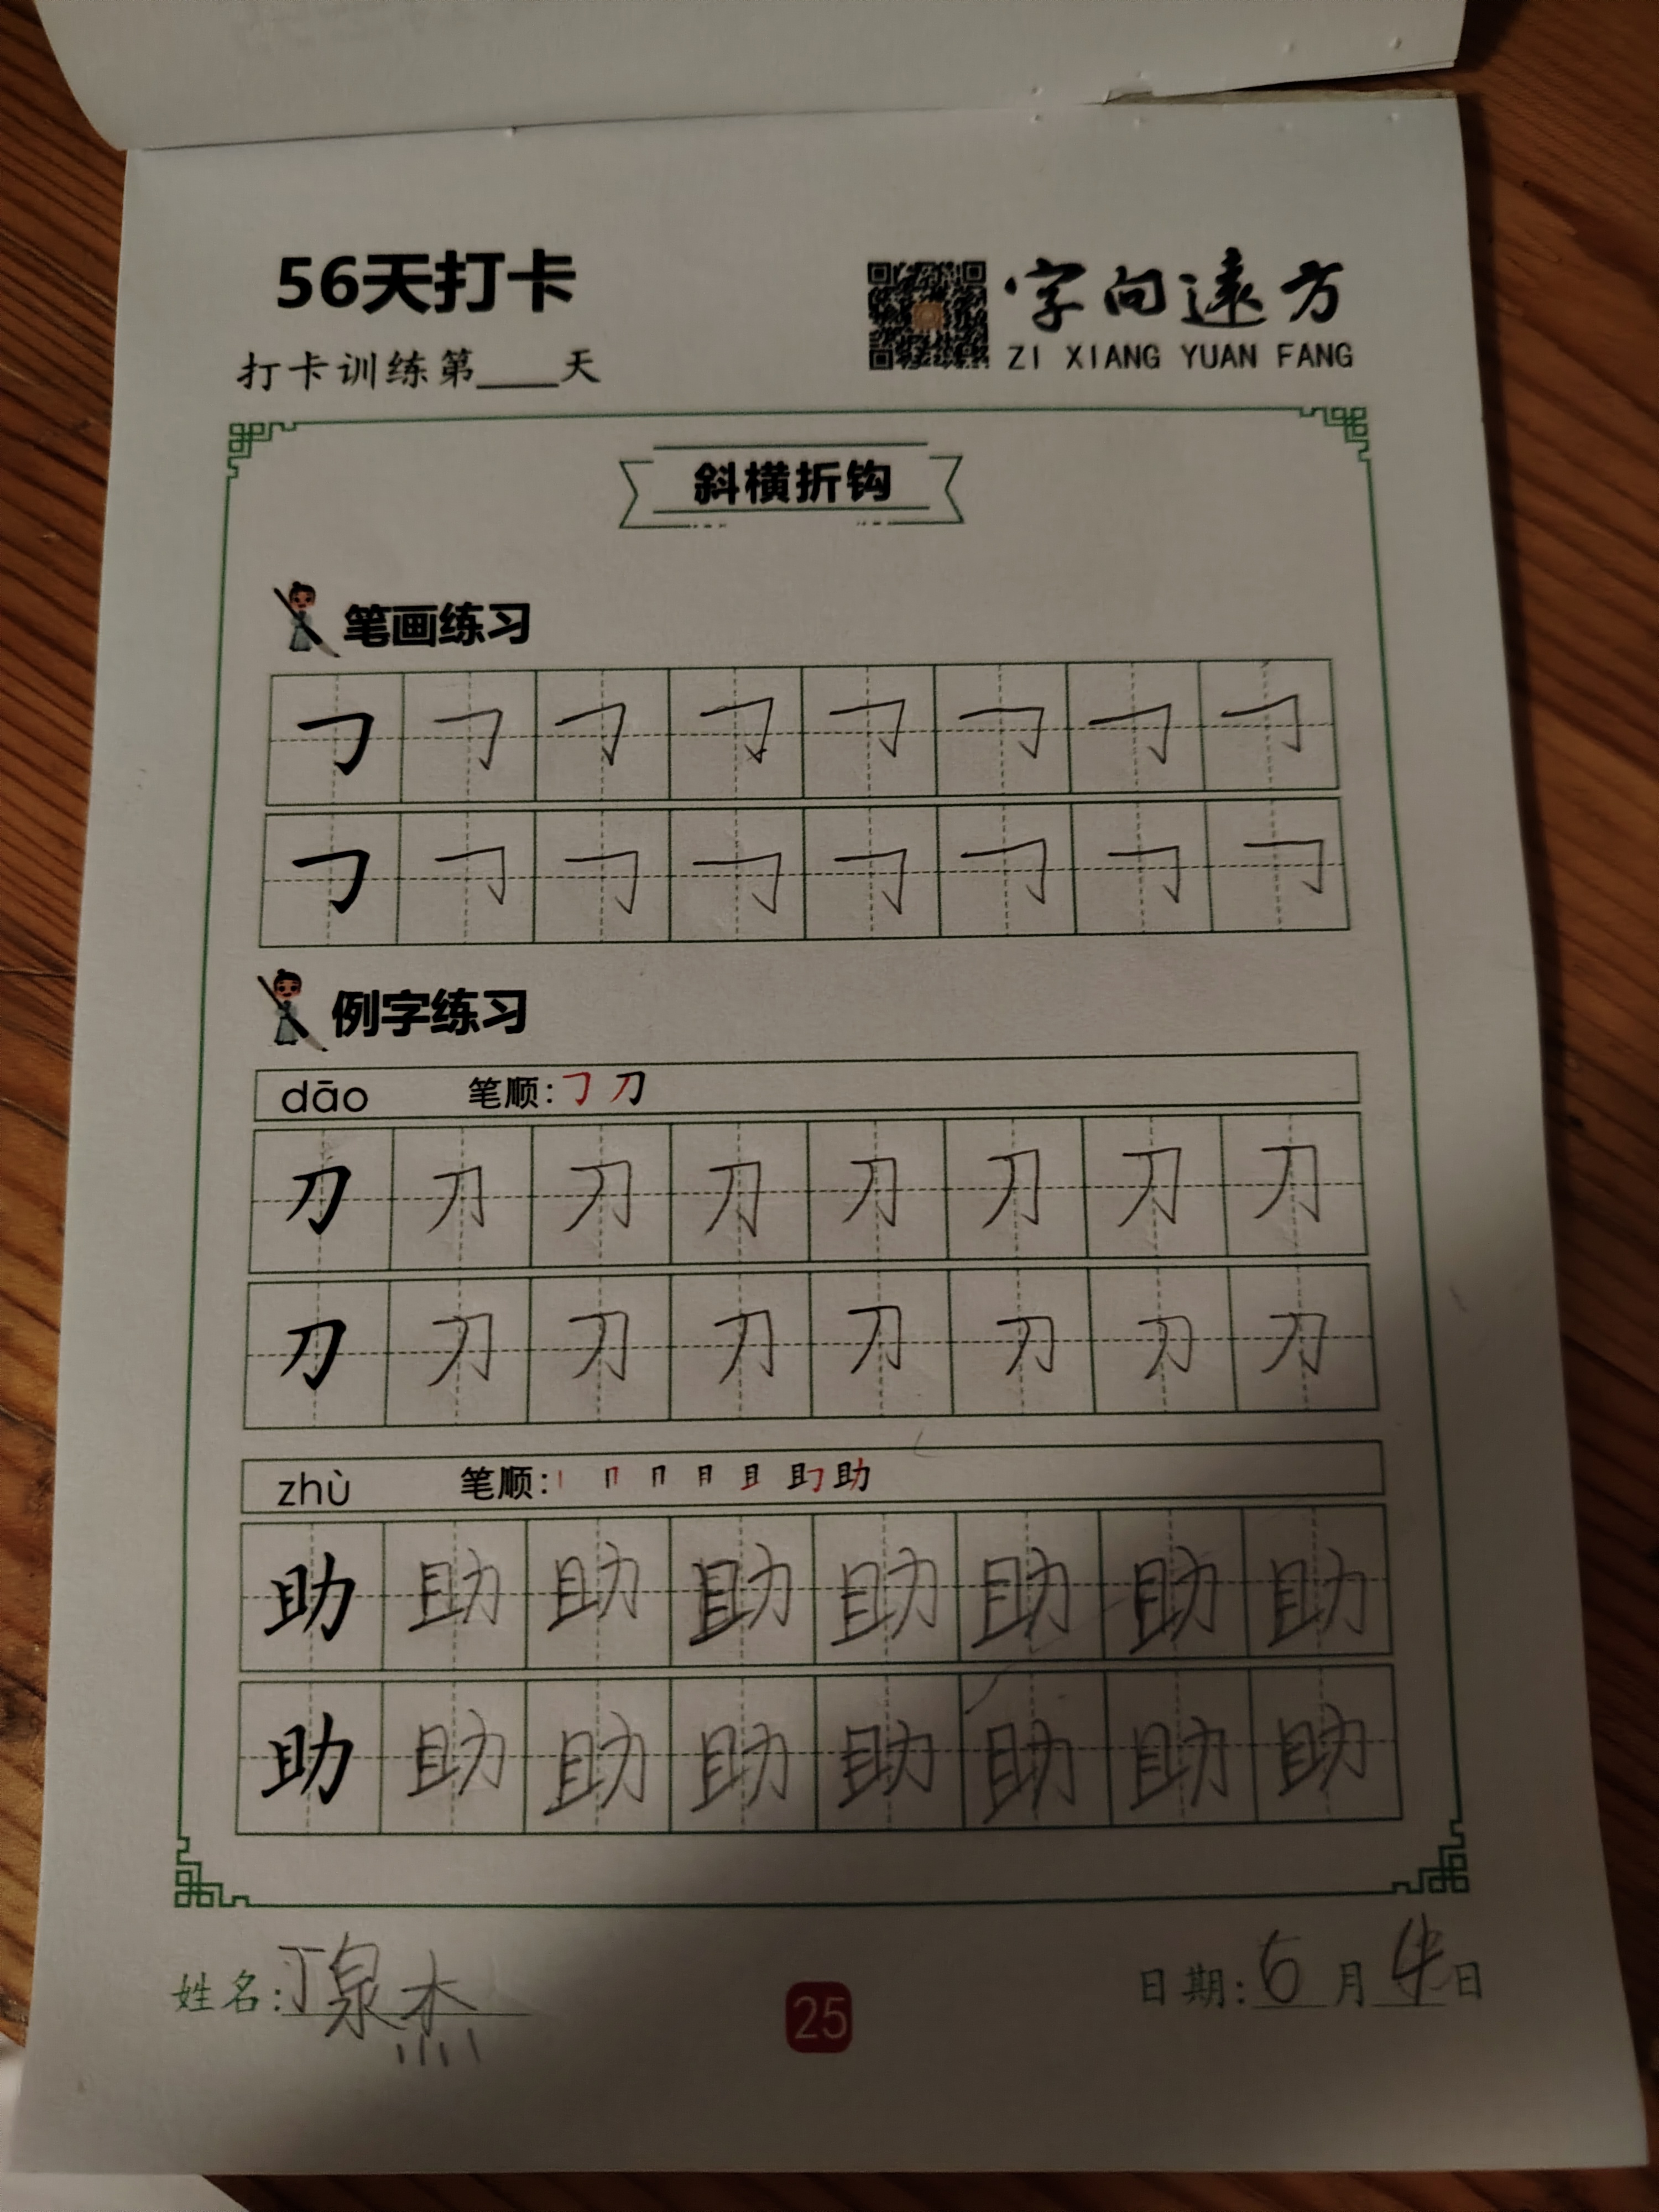 56天打卡
字向遠方
打卡训练第____天
ZI XIANG YUAN FANG
斜横折钩
笔画练习
㇆ ㇆ ㇆ ㇆ ㇆ ㇆ ㇆ ㇆
㇆ ㇆ ㇆ ㇆ ㇆ ㇆ ㇆ ㇆
例字练习
dāo 笔顺:㇆ 刀
刀 刀 刀 刀 刀 刀 刀 刀
刀 刀 刀 刀 刀 刀 刀 刀
zhù 笔顺:丨 冂 冂 月 且 助
助 助 助 助 助 助 助 助
助 助 助 助 助 助 助 助
姓名:丁泉杰
日期:6月4日
25